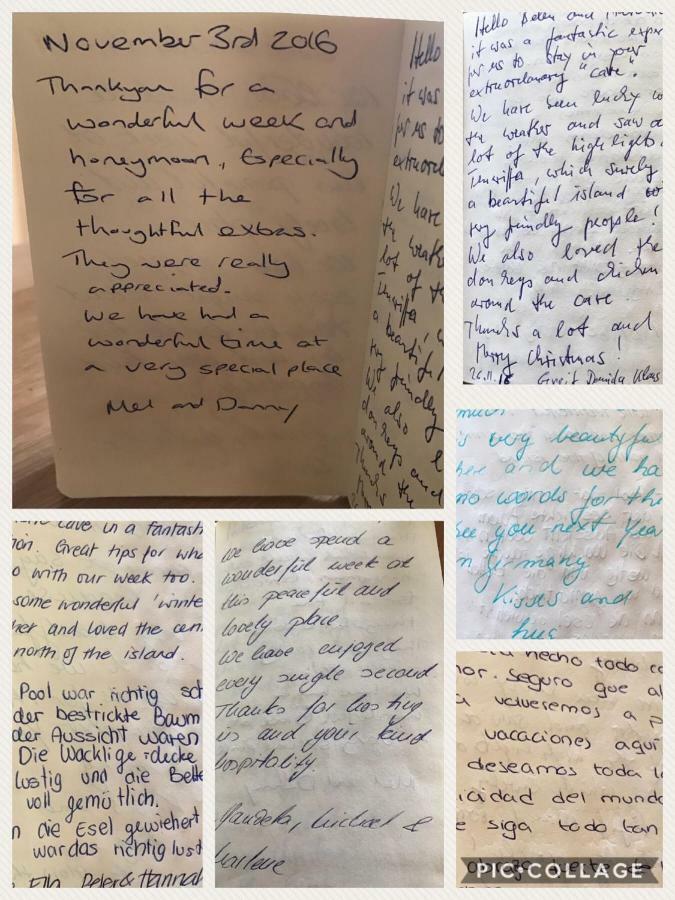 November 3rd 2016
Thankyou for a
wonderful week and
honeymoon, Especially
for all the
thoughtful extras.
They were really
appreciated.
We have had a
wonderful time at
a very special place
Mel and Danny
Hello
it was
for us to
extraord
We have
the weath
lot of the
a beautif
We also
Hello Belen and
it was a fantastic exper
for us to stay in your
extraordinary "cave".
We have been lucky w
the weather and saw a
lot of the highlights
Teneriffa, which surely
a beautiful island
very friendly people!
We also loved the
donkeys and chicken
around the cave.
Thanks a lot and
Merry Christmas!
Greit Danida Klaas
is very beautyful
and we ha
no words for the
see you next Year
n Germany
Kisses and
hug
cave in a fantast
Great tips for wha
o with our week too.
some wonderful 'winte
her and loved the cen
north of the island.
Pool war richtig sch
der bestrickte Baum
der Aussicht waren
Die Wacklige decke
lustig und die Bette
voll gemütlich.
n die Esel gewiehert
war das richtig lust
Peter & Hannah
We have spend a
wonderful week at
this peaceful and
lovely place.
We have enjoyed
every single second
Thanks for hosting
us and your kind
hospitality.
Michael &
hecho todo co
mor. Seguro que al
a volveremos a p
vacaciones aquí
deseamos toda l
icidad del mundo
e siga todo tan
PIC•COLLAGE